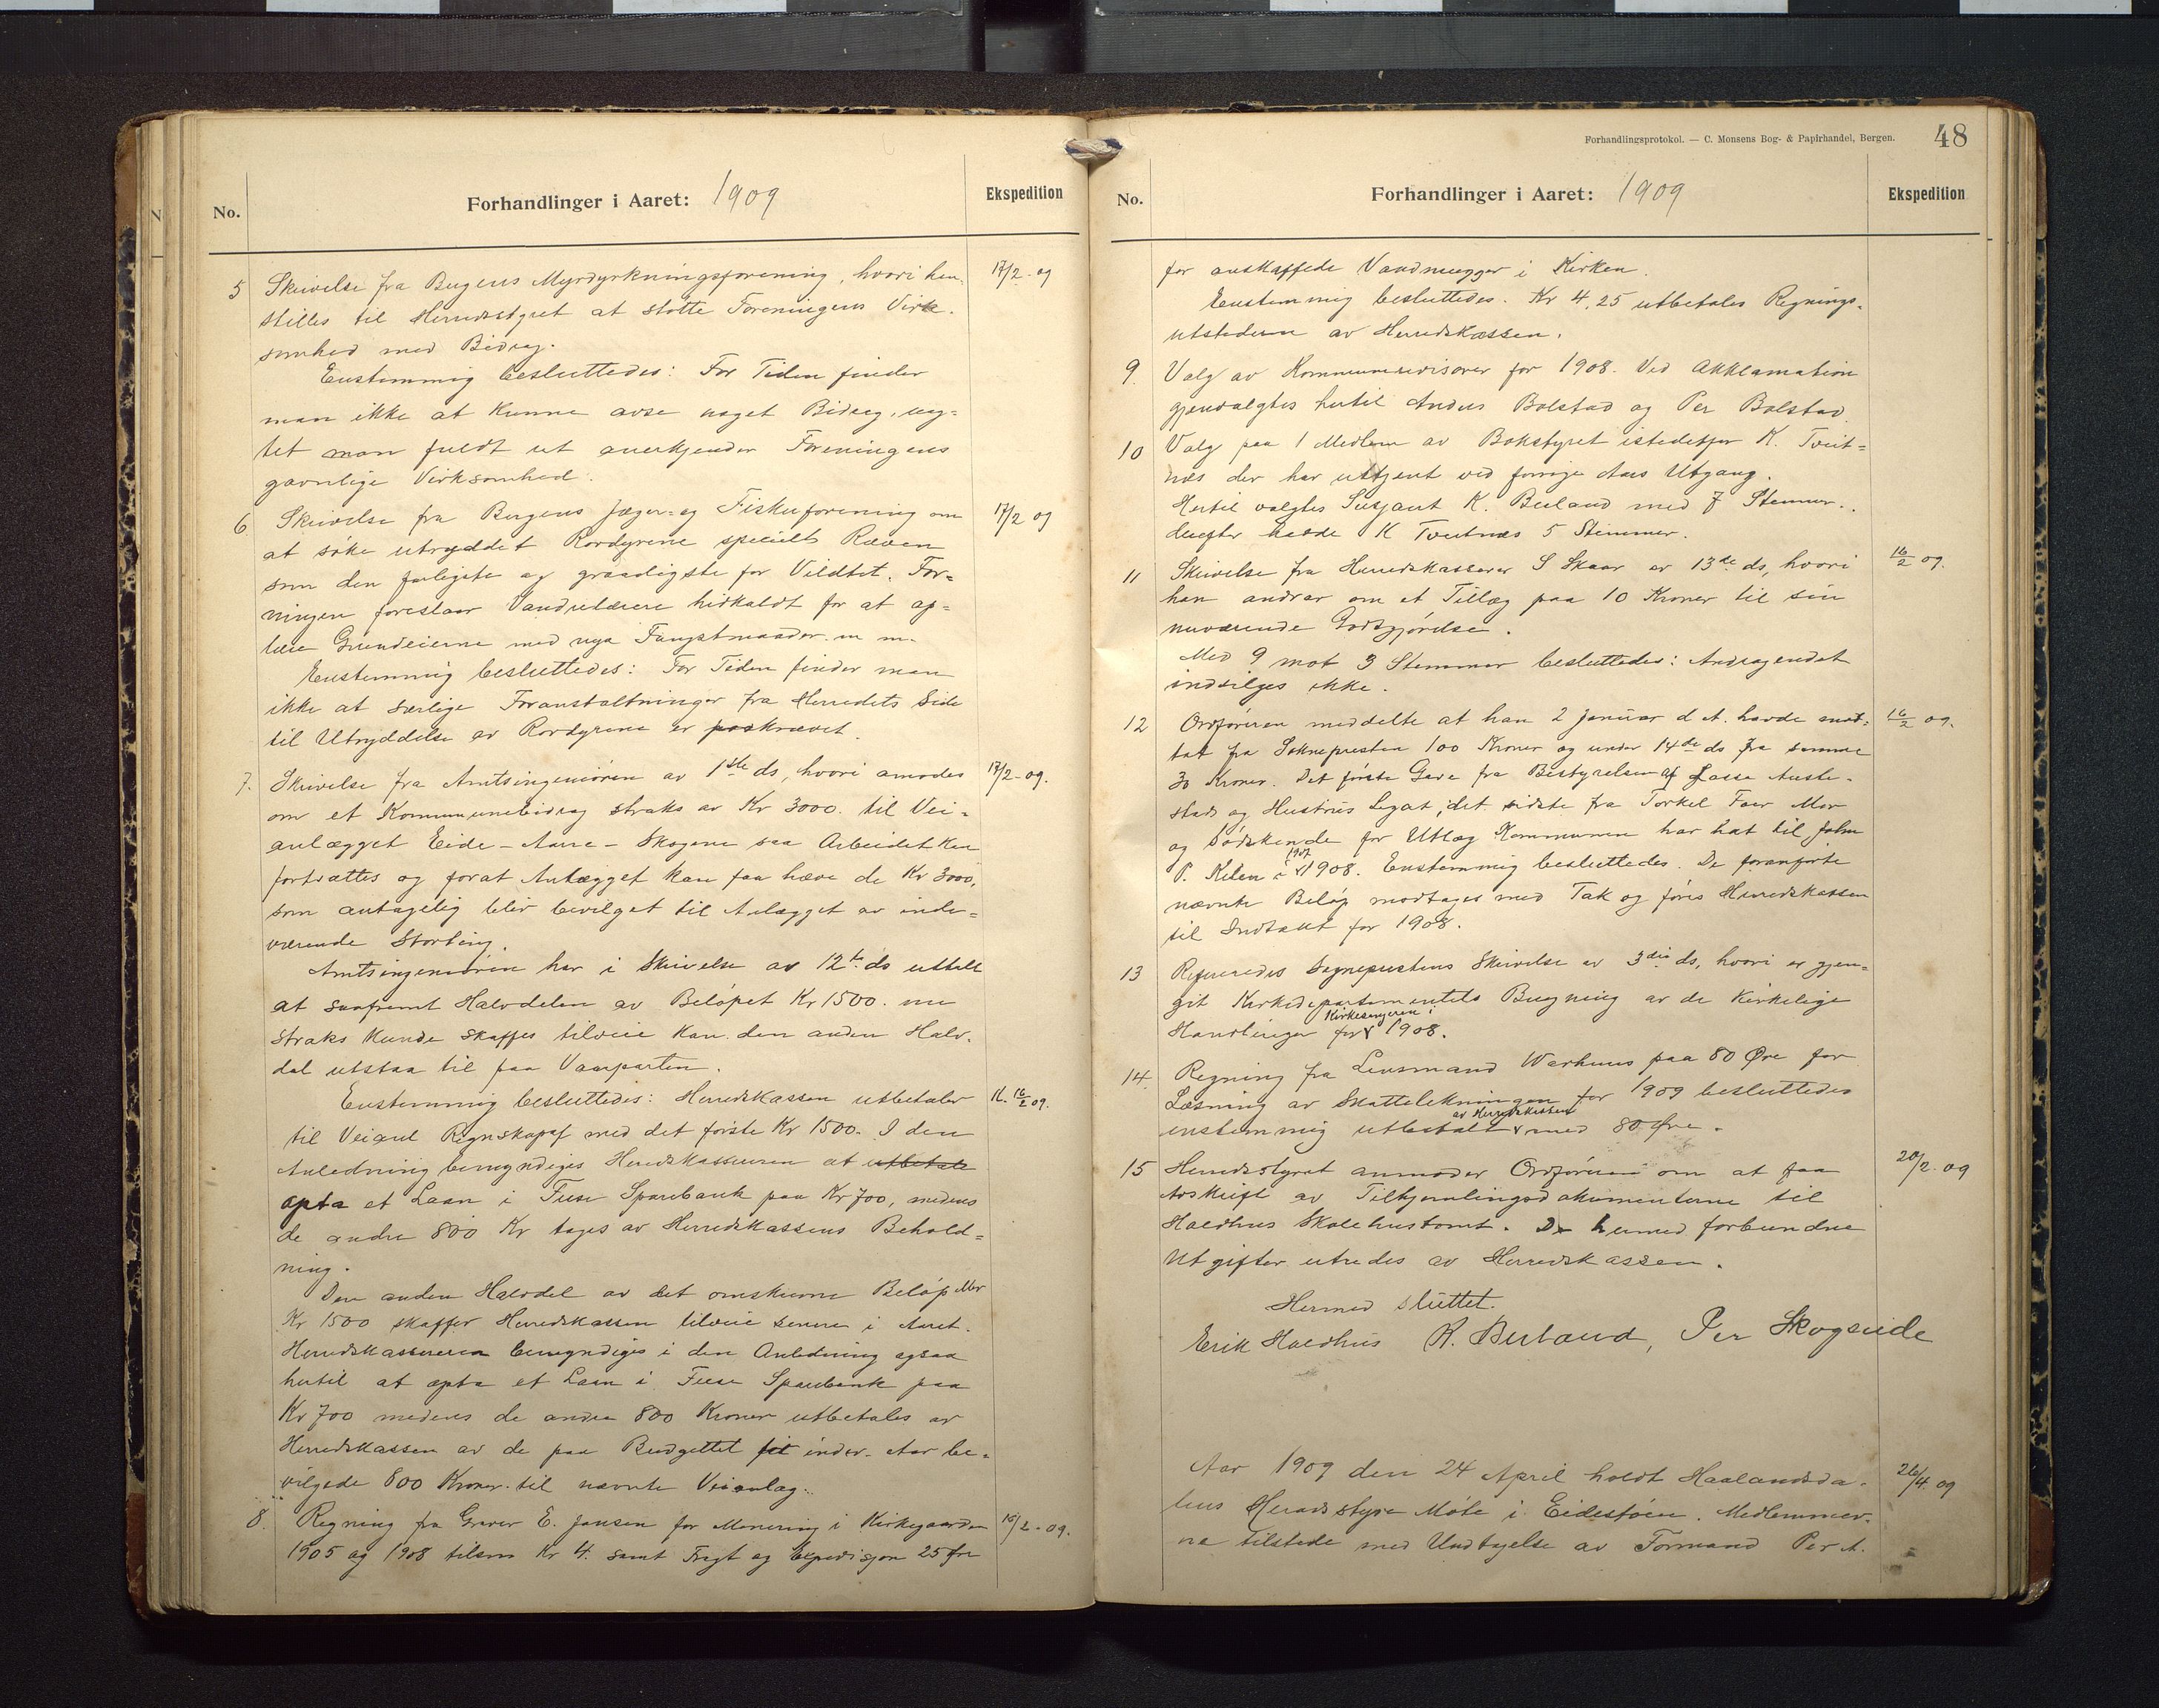 No.
Forhandlinger i Aaret: 1909
Ekspedition
5 Skrivelse fra Bergens Myrdyrkningsforening, hvori hen- 17/2-09
stilles til Herredsstyret at støtte Foreningens Virk-
somhed med Bidrag.
Enstemmig besluttedes: For Tiden finder
man ikke at kunne avse noget Bidrag, uag-
tet man fuldt ut anerkjender Foreningens
gavnlige Virksomhed.
6 Skrivelse fra Bergens Jæger- og Fiskerforening om 17/2 09
at søke utryddet Rovdyrene specielt Ræven
som den farligste og graadigste for Vildtet. For-
ningen foreslaar Vandrelærere hidkaldt for at op-
lære Grundeierne med nya Fangstmaader m m.
Enstemmig besluttedes: For Tiden finder man
ikke at særlige Foranstaltninger fra Herredets Side
til Utryddelse av Rovdyrene er paakrævet.
7. Skrivelse fra Amtsingeniøren av 1ste ds, hvori anmodes 17/2-09.
om et Kommunebidrag straks av Kr 3000. til Vei-
anlægget Eide-Aarre-Skogene saa Arbeidet kan
fortsættes og forat Anlægget kan faa hæve de Kr 3000,
som antagelig blir bevilget til Anlægget av inde-
værende Storting.
Amtsingeniøren har i Skrivelse av 12te ds uttalt
at saafremt Halvdelen av Beløpet Kr 1500. nu
straks kunde skaffes tilveie kan den anden Halv-
del utstaa til paa Vaarparten.
Enstemmig besluttedes: Herredskassen utbetaler K. 16/2 09.
til Veianl Regnskapsf med det første Kr 1500. I den
Anledning bemyndiges Herredskassereren at utbetale
opta et Laan i Fuse Sparebank paa Kr 700, medens
de andre 800 Kr tages av Herredskassens Behold-
ning.
Den anden Halvdel av det omskrevne Beløp
Kr 1500 skaffer Herredskassen tilveie senere i Aaret.
Herredskassereren bemyndiges i den Anledning ogsaa
hertil at opta et Laan i Fuse Sparebank paa
Kr 700 medens de andre 800 Kroner utbetales av
Herredskassen av de paa Budgettet for indev. Aar be-
vilgede 800 Kroner til nævnte Veianlæg.
8. Regning fra Graver E. Jansen for Monering i Kirkegaarden 15/2-09.
1905 og 1908 tilsm Kr 4. samt Fragt og Expedisjon 25 Øre
Forhandlingsprotokol. — C. Monsens Bog- & Papirhandel, Bergen.
48
No.
Forhandlinger i Aaret: 1909
Ekspedition
for anskaffede Vandmugger i Kirken.
Enstemmig besluttedes. Kr 4,25 utbetales Regnings-
utstederen av Herredskassen.
9. Valg av Kommunerevisorer for 1908. Ved Akklamation
gjenvalgtes hertil Anders Bolstad og Per Bolstad
10 Valg paa 1 Medlem av Bokstyret istedetfor K. Tveit-
næs der har uttjent ved forrige Aars Utgang.
Hertil valgtes Sersjant K. Berland med 7 Stemmer.
derefter havde K Tveitnæs 5 Stemmer.
11 Skrivelse fra Herredskasserer S Skaar av 13de ds, hvori 16/2 09.
han andrar om et Tillæg paa 10 Kroner til sin
nuværende Godtgjørelse.
Med 9 mot 3 Stemmer besluttedes: Andragendet
indvilges ikke.
12 Ordføreren meddelte at han 2 januar d A. havde mot- 16/2 09.
tat fra Sokneprestan 100 Kroner og under 14de ds fra samme
30 Kroner. Det første Gave fra Bestyrelsen af Lasse Auste-
stads og Hustrus Legat, det sidste fra Torkel Foer Mor
og Sødskende for Utlæg Kommunen har hat til John
P. Kilen i 1907 1908. Enstemmig besluttedes. De foranførte
nævnte Beløp modtages med Tak og føres Herredskassen
til Indtækt for 1908.
13 Refereredes Sognepræstens Skrivelse av 3die ds, hvori er gjen-
git Kirkedepartementets Beregning av de kirkelige
Handlinger for Kirkesangeren i 1908.
14. Regning fra Lensmand Warhuus paa 80 Øre for
Læsning av Skattelekningen for 1909 besluttedes
enstemmig utbetalt av Herredskassen med 80 Øre.
15 Herredsstyret anmoder Ordføreren om at faa 20/2-09
Avskrift av Tilhjemlingsdokumenterne til
Holdhus Skolehustomt. De hermed forbundne
Utgifter utredes av Herredskassen.
Hermed sluttet.
Erik Holdhus K. Berland, Per Skogseide
Aar 1909 den 24 April holdt Haalandsda- 26/4 09
lens Herredsstyre Møte i Eidestøen. Medlemmer-
ne tilstede med Undtagelse av Formand Per A.